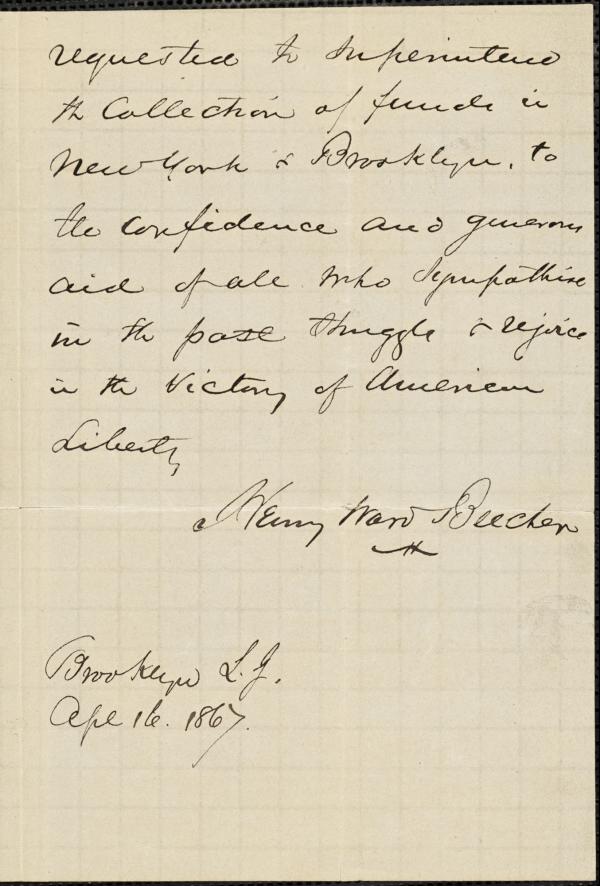 requested to superintend
the Collection of funds in
New York & Brooklyn, to
the confidence and generous
aid of all who sympathise
in the past struggle & rejoice
in the Victory of American
Liberty
Henry Ward Beecher
Brooklyn L.I.
Apl 16. 1867.